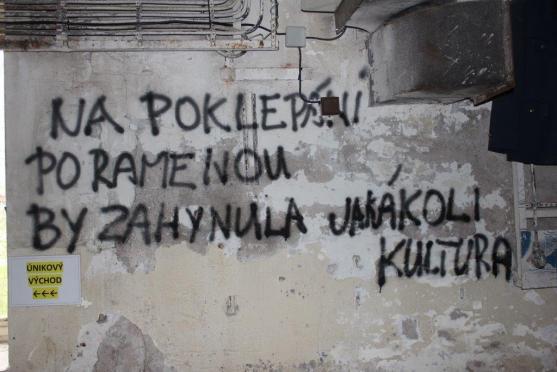 NA POKLEPÁNÍ
PO RAMENOU
BY ZAHYNULA JAKÁKOLI
KULTURA
ÚNIKOVÝ
VÝCHOD
←←←